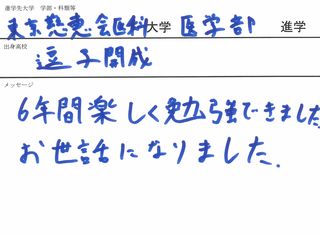 進学先大学 学部・科類等
東京慈恵会医科大学 医学部 進学
出身高校
逗子開成
メッセージ
6年間楽しく勉強できました
お世話になりました.